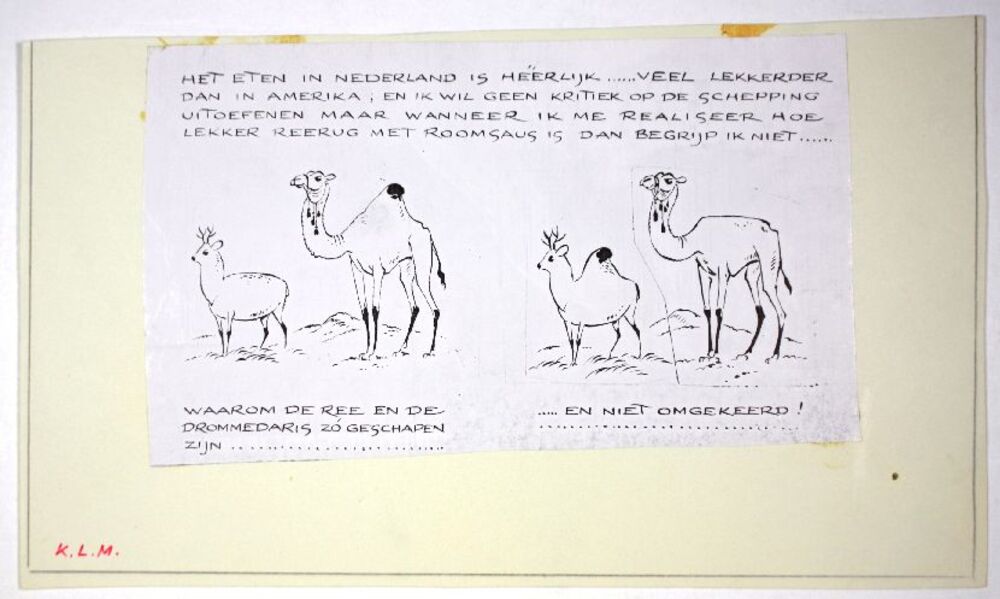 HET ETEN IN NEDERLAND IS HÉÉRLIJK ......VEEL LEKKERDER
DAN IN AMERIKA ; EN IK WIL GEEN KRITIEK OP DE SCHEPPING
UITOEFENEN MAAR WANNEER IK ME REALISEER HOE
LEKKER REERUG MET ROOMSAUS IS DAN BEGRIJP IK NIET ......
WAAROM DE REE EN DE
DROMMEDARIS ZÓ GESCHAPEN
ZIJN ...........................
..... EN NIET OMGEKEERD !
...........................
K.L.M.